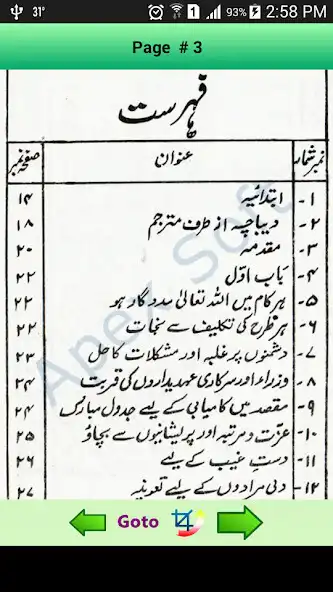 31° 1 93% 2:58 PM
Page # 3
فہرست
نمبر شمار عنوان صفحہ نمبر
۱- ابتدائیہ ۱۴
۲- دیباچہ از طرف مترجم ۱۸
۳- مقدمہ ۲۰
۴- باب اوّل ۲۲
۵- ہر کام میں اللہ تعالیٰ مددگار ہو ۲۲
۶- ہر طرح کی تکلیف سے نجات ۲۲
۷- دشمنوں پر غلبہ اور مشکلات کا حل ۲۳
۸- وزراء اور سرکاری عہدیداروں کی قربت ۲۴
۹- مقصد میں کامیابی کے لیے جدول مبارک ۲۴
۱۰- عزّت و مرتبہ اور پریشانیوں سے بچاؤ ۲۵
۱۱- دستِ غیب کے لیے ۲۶
۱۲- دلی مرادوں کے لیے تعویذ ۲۷
Apex Soft
Goto